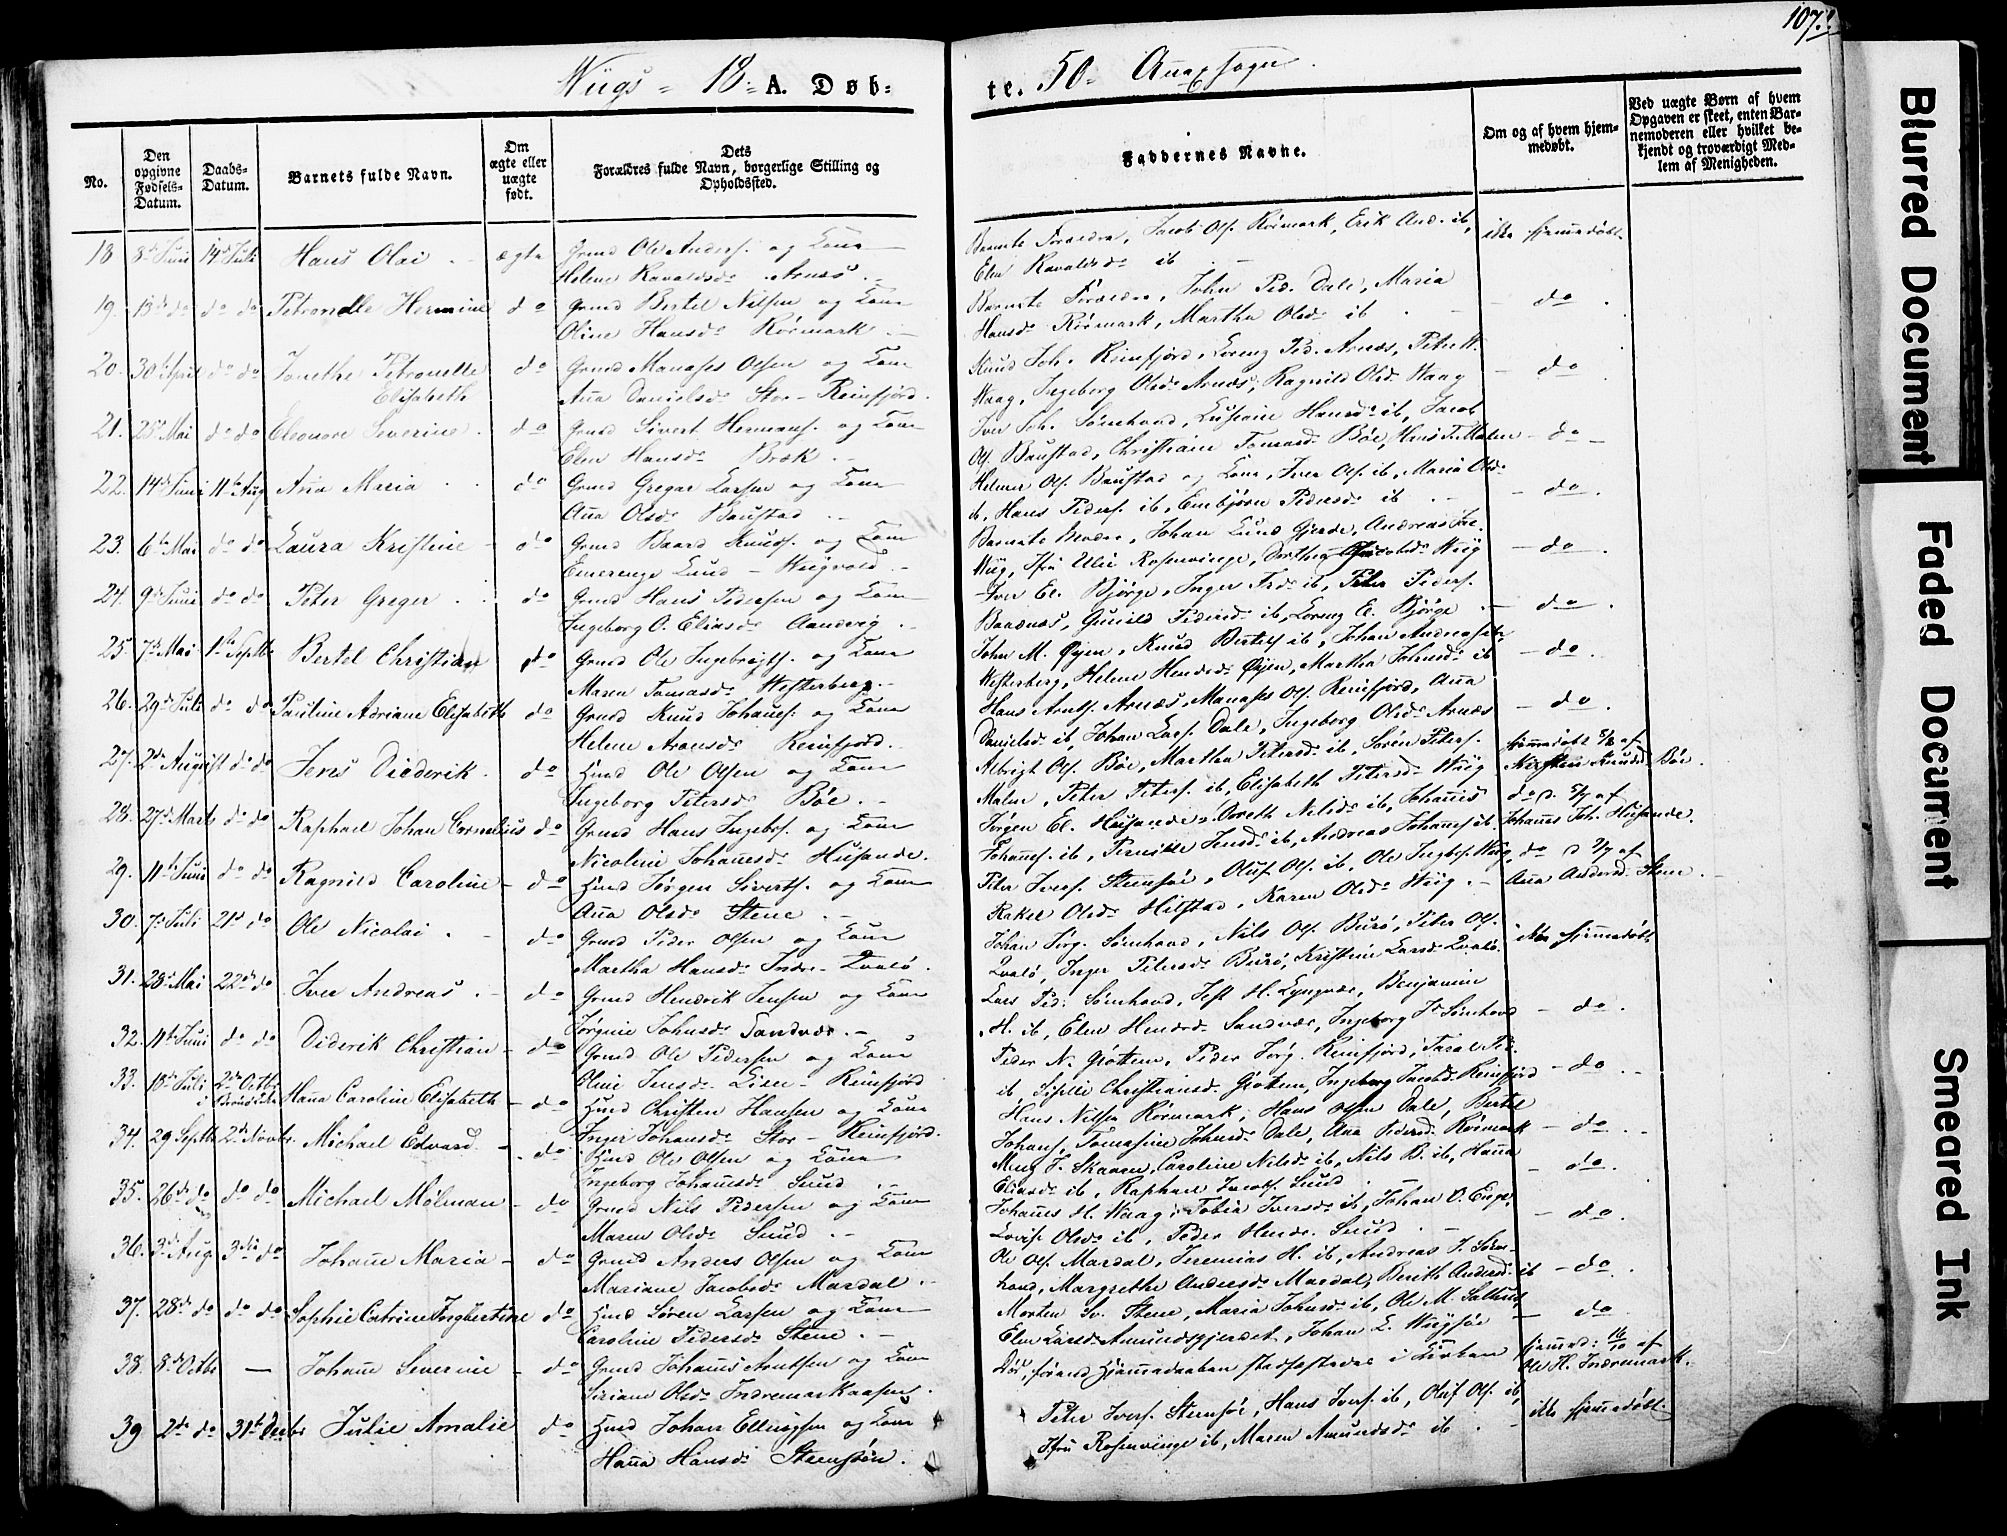 107.
Wiigs - 18 A. Døb-
te. 50. Annexsogn.
No.
Den opgivne Fødsels-Datum.
Daabs-Datum.
Barnets fulde Navn.
Om ægte eller uægte født.
Dets Forældres fulde Navn, borgerlige Stilling og Opholdssted.
Faddernes Navne.
Om og af hvem hjemmedøbt.
Ved uægte Børn af hvem Opgaven er skeet, enten Barnemoderen eller hvilket bekjendt og troværdigt Medlem af Menigheden.
18 8de Juni 14de Juli Hans Olai ægte Grmd Ole Anders. og Kone
Helene Ravaldsdr Arnæs
Barnets Forældre, Jacob Ols. Rørmark, Erik And. ib,
Elen Ravaldsdr ib
ikke hjemmedøbt
19. 13de do do do Petronelle Hermine do Grmd Bertel Nilsen og Kone
Oline Hansdr Rørmark
Barnets Forældre, John Ped. Dale, Maria
Hansdr Rørmark, Martha Olsdr ib
do
20. 30te April do do Jonetha Petronelle
Elisabeth do Grmd Manases Olsen og Kone
Ana Danielsdr Stor-Reinfjord.
Knud Joh. Reinfjord, Lorenz Ped. Arnæs, Peter H.
Waag, Ingeborg Olsdr Arnæs, Ragnild Olsdr Waag
do
21. 25de Mai do do Eleonore Severine do Grmd Sivert Hermans. og Kone
Elen Hansdr Bræk
Iver Joh. Sørnhovd, Hansdr ib, Jacob
Ols. Baustad, Christiane Tomasdr Bøe, Hans T. Malm
do
22. 14de Juni 11te Aug Ana Maria do Grmd Gregar Larsen og Kone
Ana Olsdr Baustad
Helmer Ols. Baustad og Kone, Iver Ols. ib, Maria Olsdr
ib, Hans Peders. ib, Embjørn Pedersdr ib
do
23. 6te Mai do do Laura Kristine do Grmd Baard Knuds. og Kone
Emerenze Lund - Wiigvold
Barnets Johan Lund Gjerde, Andreas
Wiig, Ulie Rosenvinge, Dorthea Jacobsdr Wiig
do
24. 9de Juni do do Peter Greger do Grmd Hans Pedersen og Kone
Ingeborg O. Eliasdr Aandvig
Iver El. Bjørge, Inger ib, Peter Peders.
Baadnæs, Gunild Pedersdr ib, Lorenz E. Bjørge
do
25 7de Mai 1ste Septb Bertel Christian do Grmd Ole Ingebrigts. og Kone
Maren Tomasdr Westerberg
John M. Øyen, Knud Bertels ib, Johan Andreas
Westerberg, Helene Hendrdr Øyen, Martha Johnsdr ib
do
26. 29de Juli do do Pauline Adriane Elisabeth do Grmd Knud Johans. og Kone
Helene Aronsdr Reinfjord.
Hans Arnts. Arnæs, Manases Ols. Reinfjord, Ana
Danielsdr ib, Johan Lars. Dale, Ingeborg Olsdr Arnæs
do
27. 2de August do do Jens Diderik do Husmd Ole Olsen og Kone
Ingeborg Petersdr Bøe
Albrigt Ols. Bøe, Martha Petersdr ib, Søren Peters.
Malm, Peter Peters. ib, Elisabeth Petersdr Wiig
hjemmedøbt 5/8 af
Kirsten Knudsd Bøe.
28. 27de Marts do do Raphael Johan Cornelius do Grmd Hans Ingebr. og Kone
Nicoline Johanesdr Husande.
Jørgen El. Husande, Doreth Nilsdr ib, Johanes
Johans. ib, Pernille Jensdr ib, Andreas Johans ib
do d. 5/7 af
Johanes Joh. Husande.
29. 11te Juni do do Ragnild Caroline do Husmd Jørgen Siverts. og Kone
Ana Olsdr Stene
Peter Ivers. Steensøe, Oluf Ols. ib, Ole Ingbr. Wiig,
Rakel Olsdr Hilstad, Karen Olsdr Wiig
do d. 2/7 af
Ana Andersd. Stene
30. 7de Juli 21de do Ole Nicolai do Grmd Peder Olsen og Kone
Martha Hansdr Indre-Qvalø.
Johan Jørg. Sørnhovd, Nils Ols. Burø, Peter Ols.
Qvalø, Inger Petersdr Burø, Kristine Larsdr Qvalø.
ikke hjemmedøbt
31. 28de Mai 22de do Iver Andreas do Grmd Hendrik Jensen og Kone
Jørgine Johnsdr Sandvær
Lars Ped. Sørnhovd, H. Lyngvær, Benjamin
H. ib, Elen Hendrdr Sandvær, Ingeborg Sørnhovd
do
32. 11te Juni do do Diderik Christian do Grmd Ole Pedersen og Kone
Oline Jensdr Reinfjord
Peder N. Grøttem, Peder Jørg. Reinfjord, Ped.
ib, Christiansdr Grøttem, Ingeborg Jacobdr Reinfjord
do
33. 18de Juli 2de Octbr Hana Caroline Elisabeth do Husmd Christen Hansen og Kone
Inger Johansdr Stor-Reinfjord.
Hans Nilsen Rørmark, Hans Olsen Dale, Bertel
Johans, Tomasine Johnsdr Dale, Ana Pedersdr Rørmark
do
34. 29 Septb 2de Novbr. Michael Edvard do Husmd Ole Olsen og Kone
Ingeborg Johanesdr Sund
J. Skaaren, Caroline Nilsdr ib, Nils B. ib, Hana
Eliasdr ib, Raphael Jacobs. Sund
do
35. 26de do do do Michael Mølman do Grmd Nils Pedersen og Kone
Maren Olsdr Sund
Johanes H. Waag, Tobia Iversdr ib, Johan O. Engs,
Lovise Olsdr ib, Peder Hendr. Sund
do
36. 3de Aug 3die do Johane Maria do Grmd Anders Olsen og Kone
Mariane Jacobsdr Mardal
Ole Ols. Mardal, Jeremias H. ib, Andreas J. Sørn-
hovd, Margrethe Andersdr Mardal, Berith Andersdr ib
do
37. 28de do do do Sophie Catrine Ingbertine do Husmd Søren Larsen og Kone
Caroline Pedersdr Stene
Morten Sv. Stene, Maria Johnsdr ib, Ole M.
Elen Larsdr Amundsgjerdet, Johan E. Wiigsøe
do
38. 8de Octbr — Johane Severine do Grmd Johanes Arntsen og Kone
Siriane Olsdr Indremarkaasen.
Død, førend Hjemmedaaben stadfæstedes i Kirken
hjemmed: 16/10 af
Ole H. Indremark.
39 2de do 31te Decbr Julie Amalie do Husmd Johan Ellingsen og Kone
Hana Hansdr Steensøen.
Peter Ivers. Steensøe, Hans Ivers. ib, Oluf Ols. ib,
Rosenvinge ib, Maren Amundsdr ib
ikke hjemmedøbt
Blurred Document
Faded Document
Smeared Ink